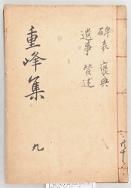 碑表 褒典
遺事 贊述
重峰集 九